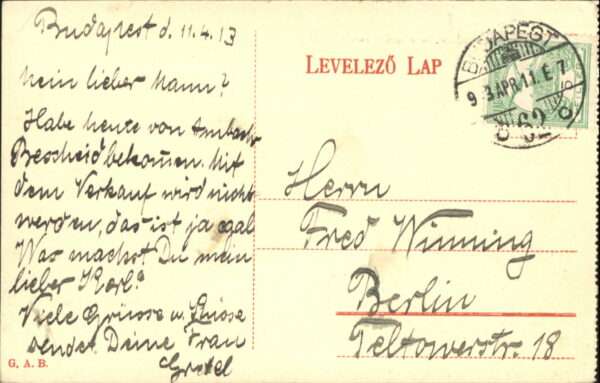 Budapest d. 11.4.13
Mein lieber Mann!
Habe heute von Ambach
Bescheid bekommen. Mit
dem Verkauf wird nichts
werden, das ist ja egal
Was machst Du mein
lieber Kerl?
Viele Grüsse u. Küsse
sendet Deine Frau
Gretel
G. A. B.
LEVELEZŐ LAP
BUDAPEST
913 APR 11. É. 7
62
Herrn
Fred Winning
Berlin
Teltowerstr. 18